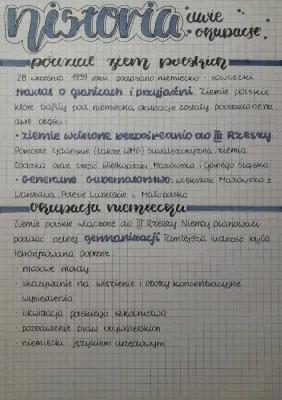 historia dwie
okupacje
podział ziem polskich
28 września 1939 roku podpisano niemiecko - sowiecki
traktat o granicach i przyjaźni. Ziemie polskie
które trafiły pod niemiecką okupację zostały podzielone na
dwie części:
· ziemie wcielone bezpośrednio do III Rzeszy:
Pomorze Gdańskie (także WMG) Suwalszczyzna, ziemia
łódzka oraz część Wielkopolski Mazowsza i Górnego Śląska
· Generalne Gubernatorstwo: większość Mazowsza z
Warszawą, Polesie Lubelskie i Małopolska
okupacja niemiecka
Ziemie polskie włączone do III Rzeszy Niemcy planowali
poddać pełnej germanizacji. Tamtejsza ludność była
terroryzowana poprzez:
· masowe mordy
· skazywanie na więzienie i obozy koncentracyjne
· wysiedlenia
· likwidacja polskiego szkolnictwa
· pozbawienie praw obywatelskich
· niemiecki językiem urzędowym